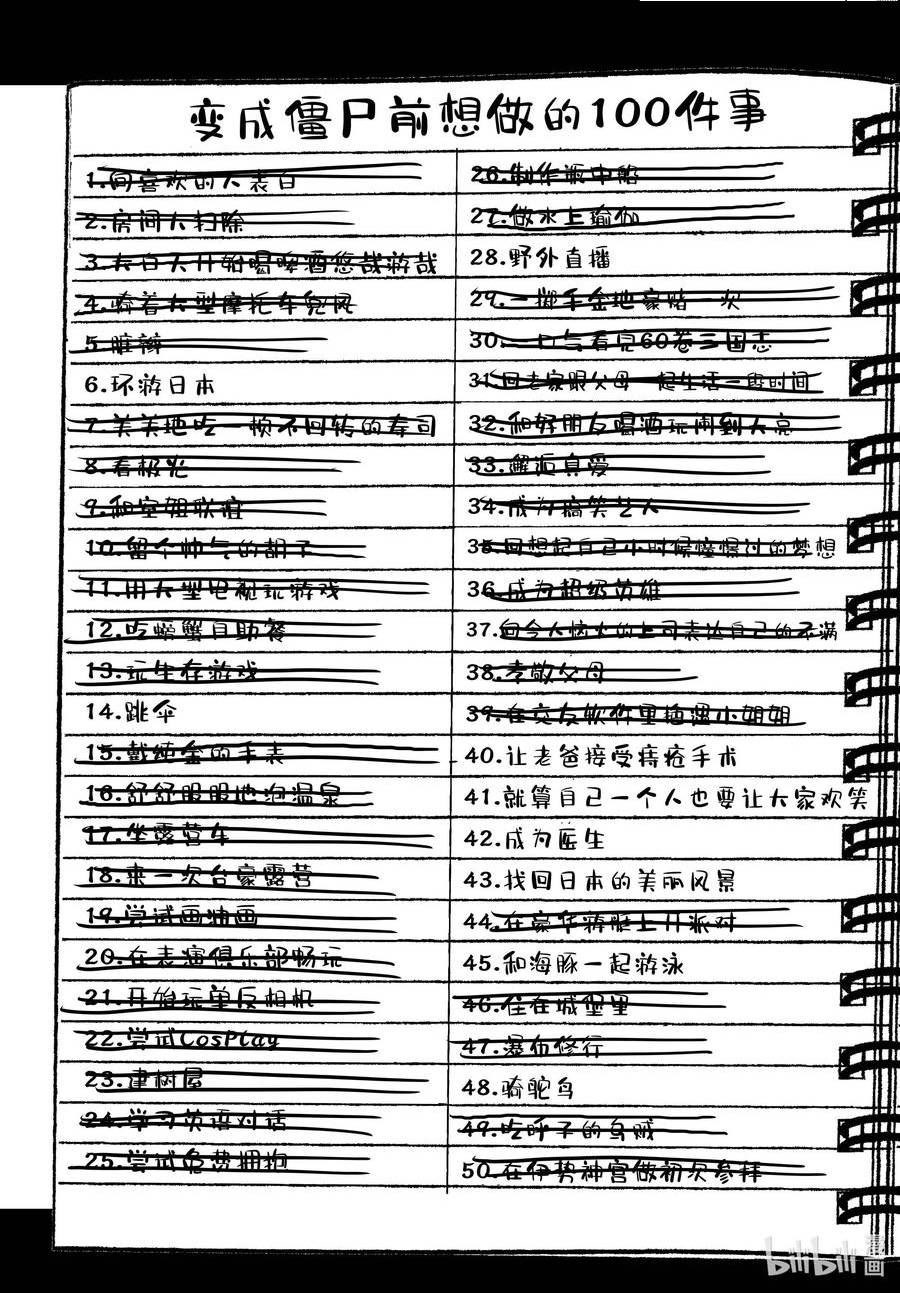 变成僵尸前想做的100件事
1.向喜欢的人表白
2.房间大扫除
3.大白天开始喝啤酒悠哉游哉
4.骑着大型摩托车兜风
5.脏辫
6.环游日本
7.美美地吃一顿不回转的寿司
8.看极光
9.和空姐联谊
10.留个帅气的胡子
11.用大型电视玩游戏
12.吃螃蟹自助餐
13.玩生存游戏
14.跳伞
15.戴纯金的手表
16.舒舒服服地泡温泉
17.坐露营车
18.来一次合家露营
19.尝试画油画
20.在表演俱乐部畅玩
21.开始玩单反相机
22.尝试CosPlay
23.建树屋
24.学习英语对话
25.尝试免费拥抱
26.制作瓶中船
27.做水上瑜伽
28.野外直播
29.一掷千金地豪赌一次
30.一口气看完60卷三国志
31.回老家跟父母一起生活一段时间
32.和好朋友喝酒玩闹到天亮
33.邂逅真爱
34.成为搞笑艺人
35.回想起自己小时候憧憬过的梦想
36.成为超级英雄
37.向令人恼火的上司表达自己的不满
38.孝敬父母
39.在交友软件里搭讪小姐姐
40.让老爸接受痔疮手术
41.就算自己一个人也要让大家欢笑
42.成为医生
43.找回日本的美丽风景
44.在豪华游艇上开派对
45.和海豚一起游泳
46.住在城堡里
47.瀑布修行
48.骑鸵鸟
49.吃呼子的乌贼
50.在伊势神宫做初次参拜
bilibili漫画